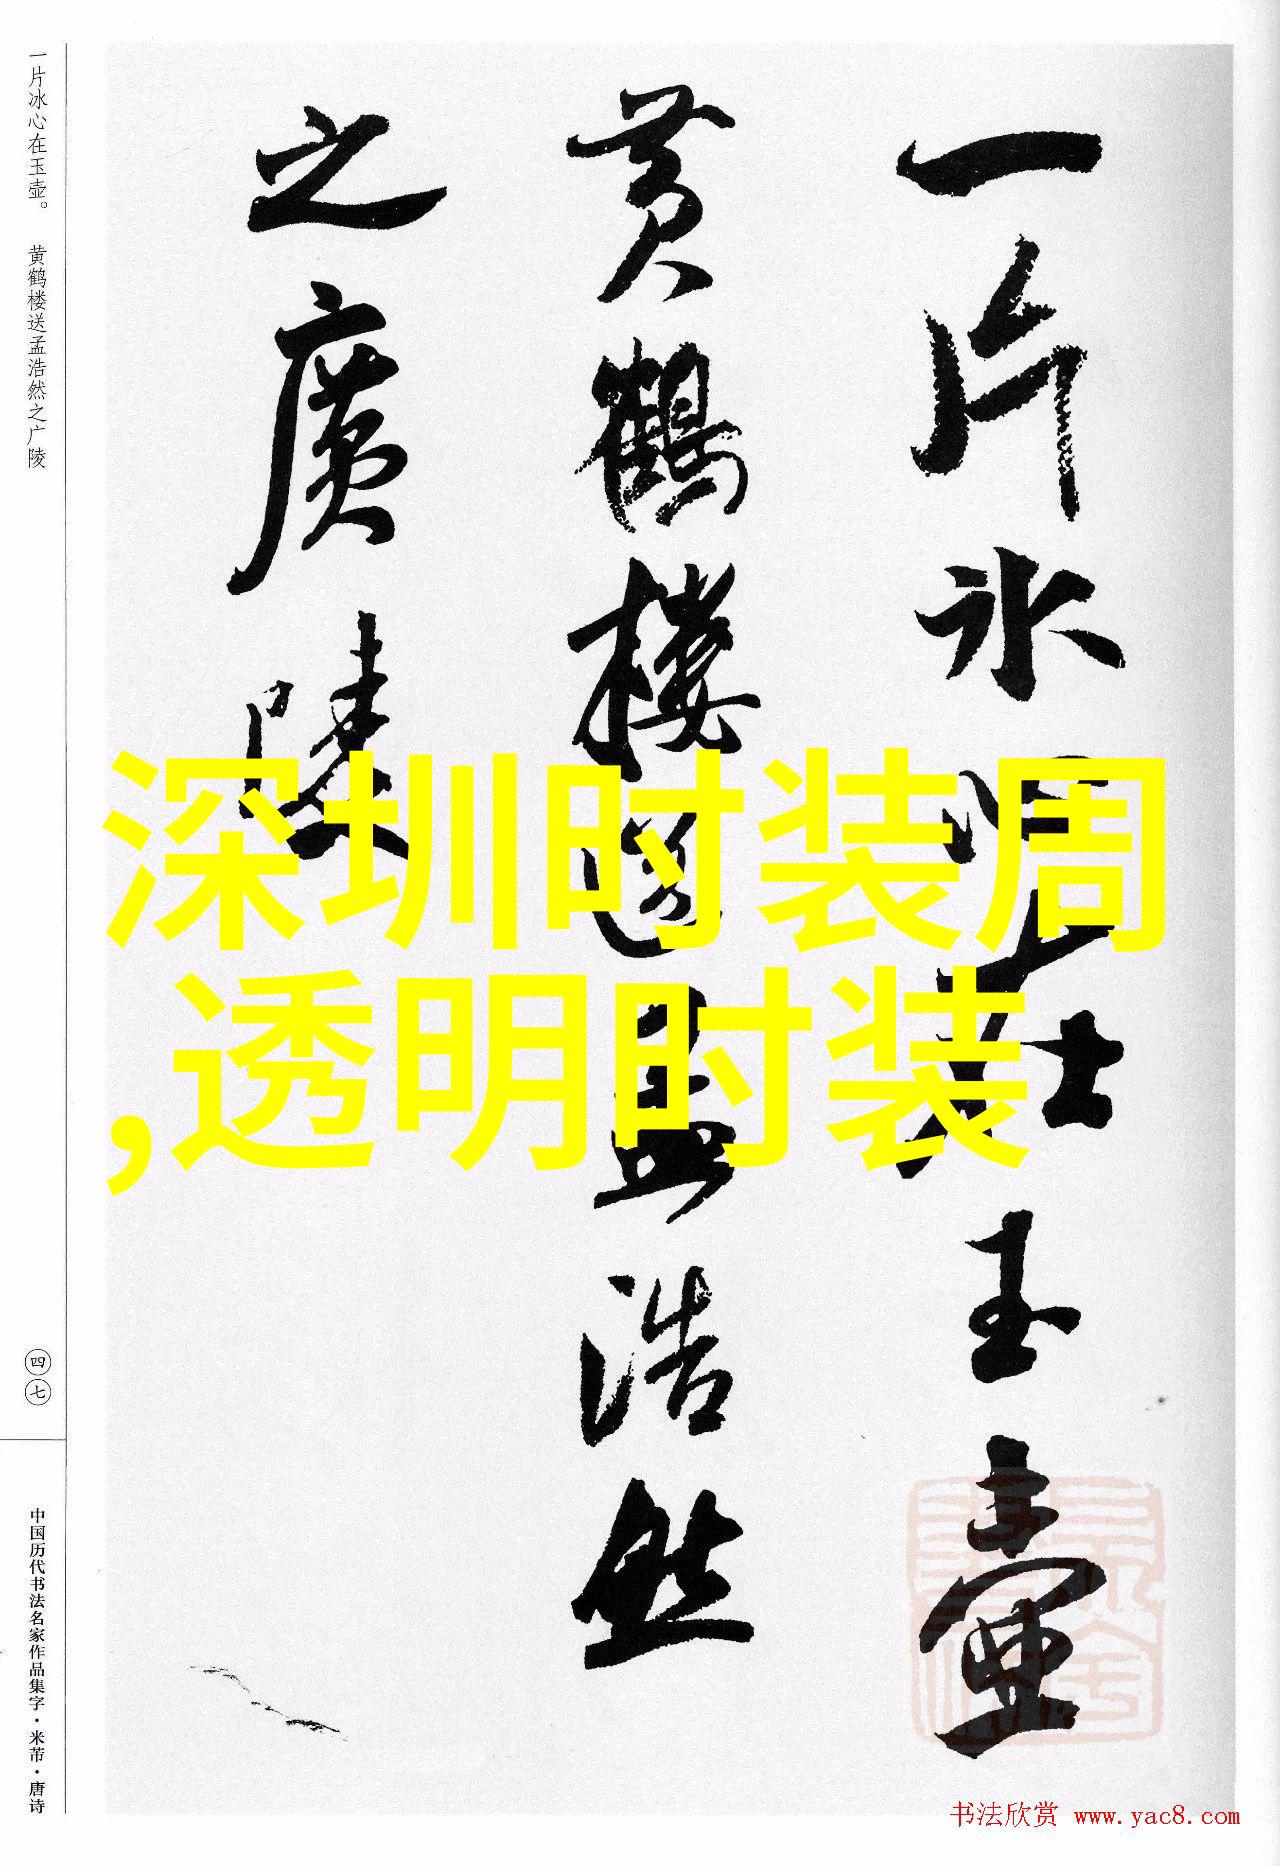 一片冰心在玉壶。 黄鹤楼送孟浩然之广陵
一片冰心在玉壺
黄鶴樓送孟浩然
之廣陵
深圳时装周
,透明时装
四七
中国历代书法名家作品集字·米芾·唐诗
书法欣赏 www.yac8.com